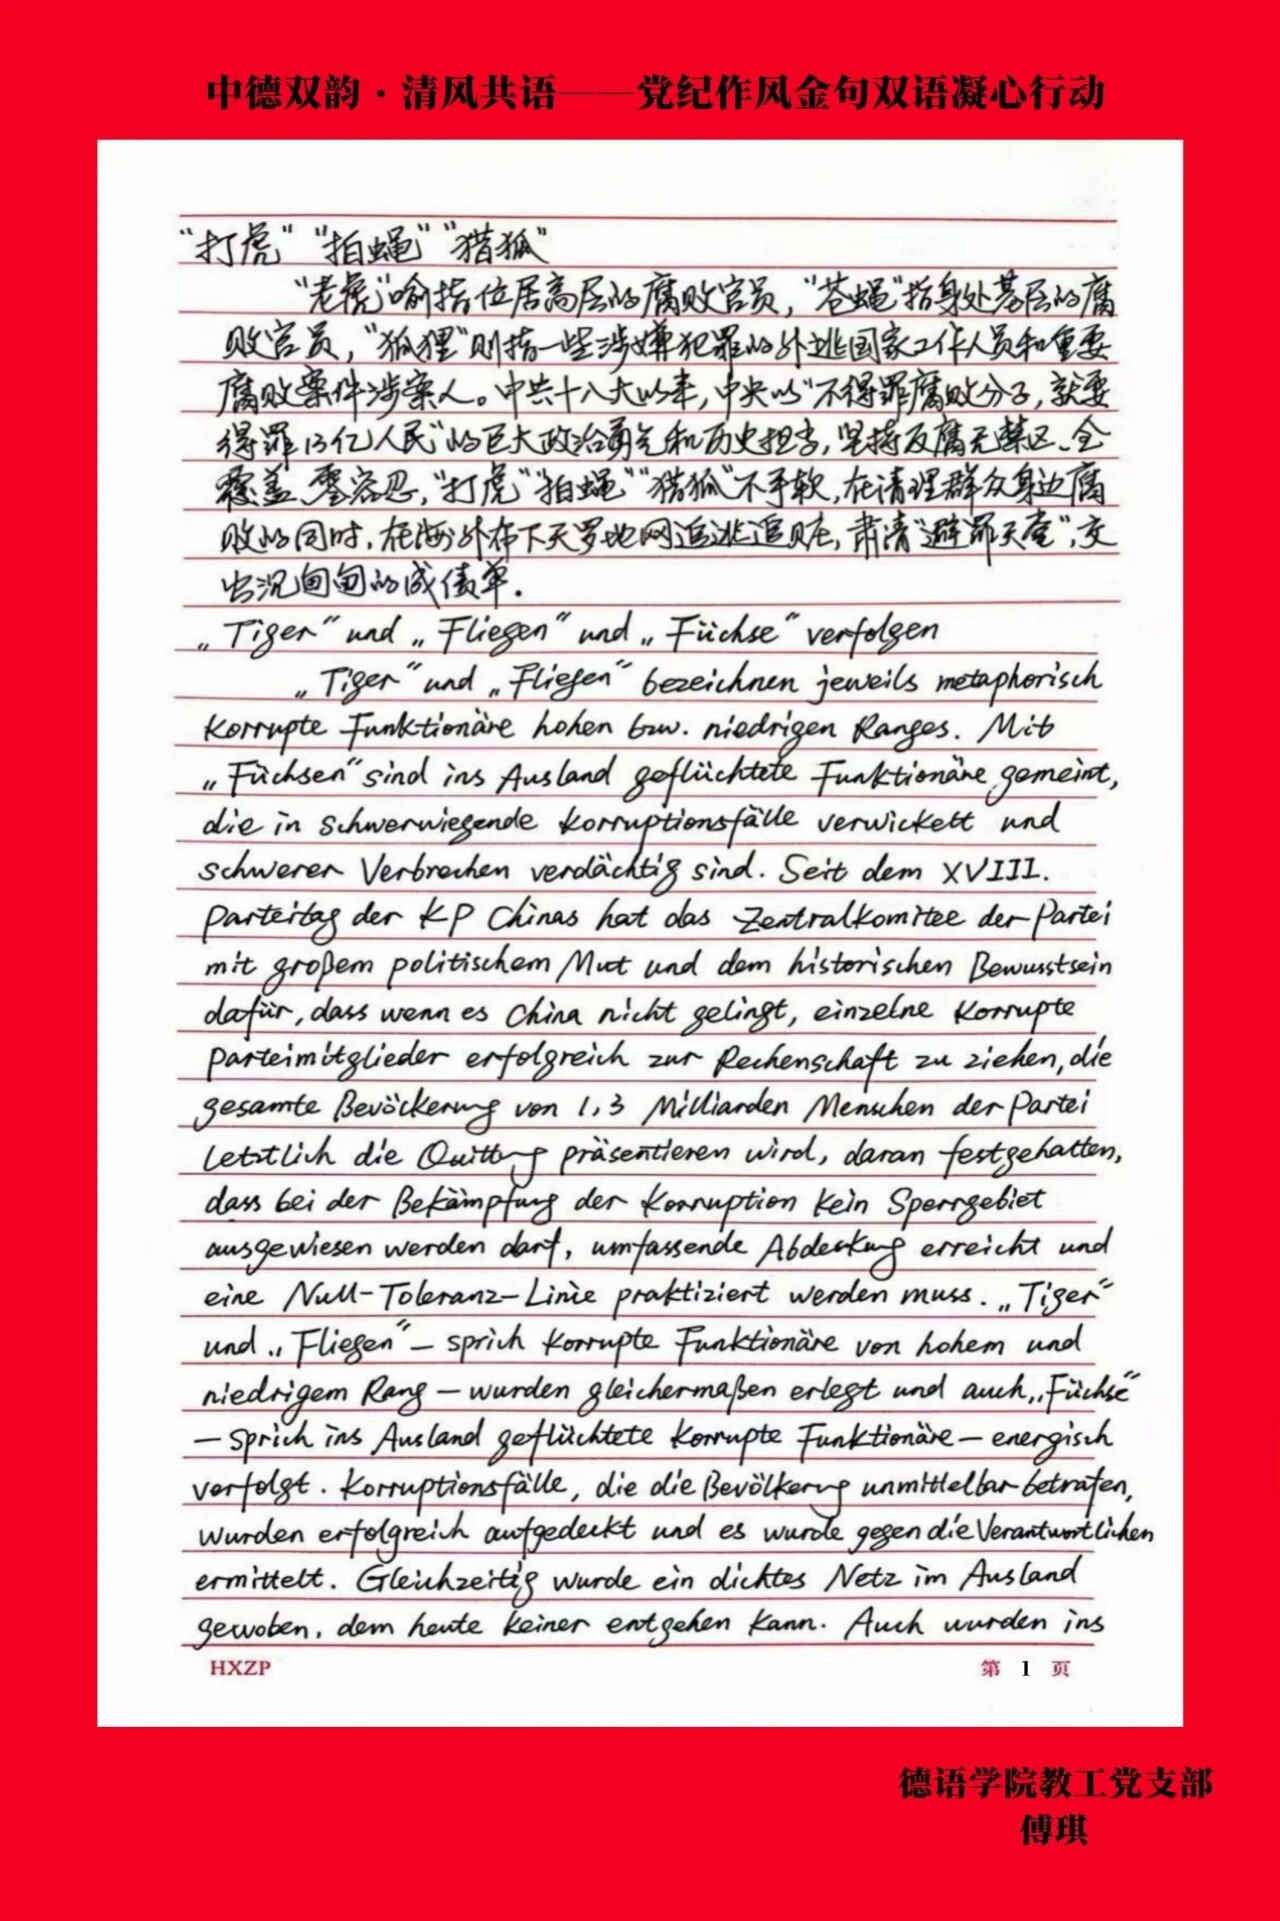 中德双韵·清风共语——党纪作风金句双语凝心行动
“打虎”“拍蝇”“猎狐”
“老虎”喻指位居高层的腐败官员，“苍蝇”指身处基层的腐
败官员，“狐狸”则指一些涉嫌犯罪的外逃国家工作人员和重要
腐败案件涉案人。中共十八大以来，中央以“不得罪腐败分子，就要
得罪13亿人民”的巨大政治勇气和历史担当，坚持反腐无禁区、全
覆盖、零容忍，“打虎”“拍蝇”“猎狐”不手软，在清理群众身边腐
败的同时，在海外布下天罗地网追逃追赃，肃清“避罪天堂”，交
出沉甸甸的成绩单.
„Tiger“ und „Fliegen“ und „Füchse“ verfolgen
„Tiger“ und „Fliegen“ bezeichnen jeweils metaphorisch
korrupte Funktionäre hohen bzw. niedrigen Ranges. Mit
„Füchsen“ sind ins Ausland geflüchtete Funktionäre gemeint,
die in schwerwiegende Korruptionsfälle verwickelt und
schwerer Verbrechen verdächtig sind. Seit dem XVIII.
Parteitag der KP Chinas hat das Zentralkomitee der Partei
mit großem politischem Mut und dem historischen Bewusstsein
dafür, dass wenn es China nicht gelingt, einzelne korrupte
Parteimitglieder erfolgreich zur Rechenschaft zu ziehen, die
gesamte Bevöckerung von 1,3 Milliarden Menschen der Partei
letztlich die Quittung präsentieren wird, daran festgehalten,
dass bei der Bekämpfung der Korruption kein Sperrgebiet
ausgewiesen werden darf, umfassende Abdeckung erreicht und
eine Null-Toleranz-Linie praktiziert werden muss. „Tiger“
und „Fliegen“ – sprich korrupte Funktionäre von hohem und
niedrigem Rang – wurden gleichermaßen erlegt und auch „Füchse“
– sprich ins Ausland geflüchtete korrupte Funktionäre – energisch
verfolgt. Korruptionsfälle, die die Bevölkerung unmittelbar betrafen,
wurden erfolgreich aufgedeckt und es wurde gegen die Verantwortlichen
ermittelt. Gleichzeitig wurde ein dichtes Netz im Ausland
gewoben, dem heute keiner entgehen kann. Auch wurden ins
HXZP 第 1 页
德语学院教工党支部
傅琪